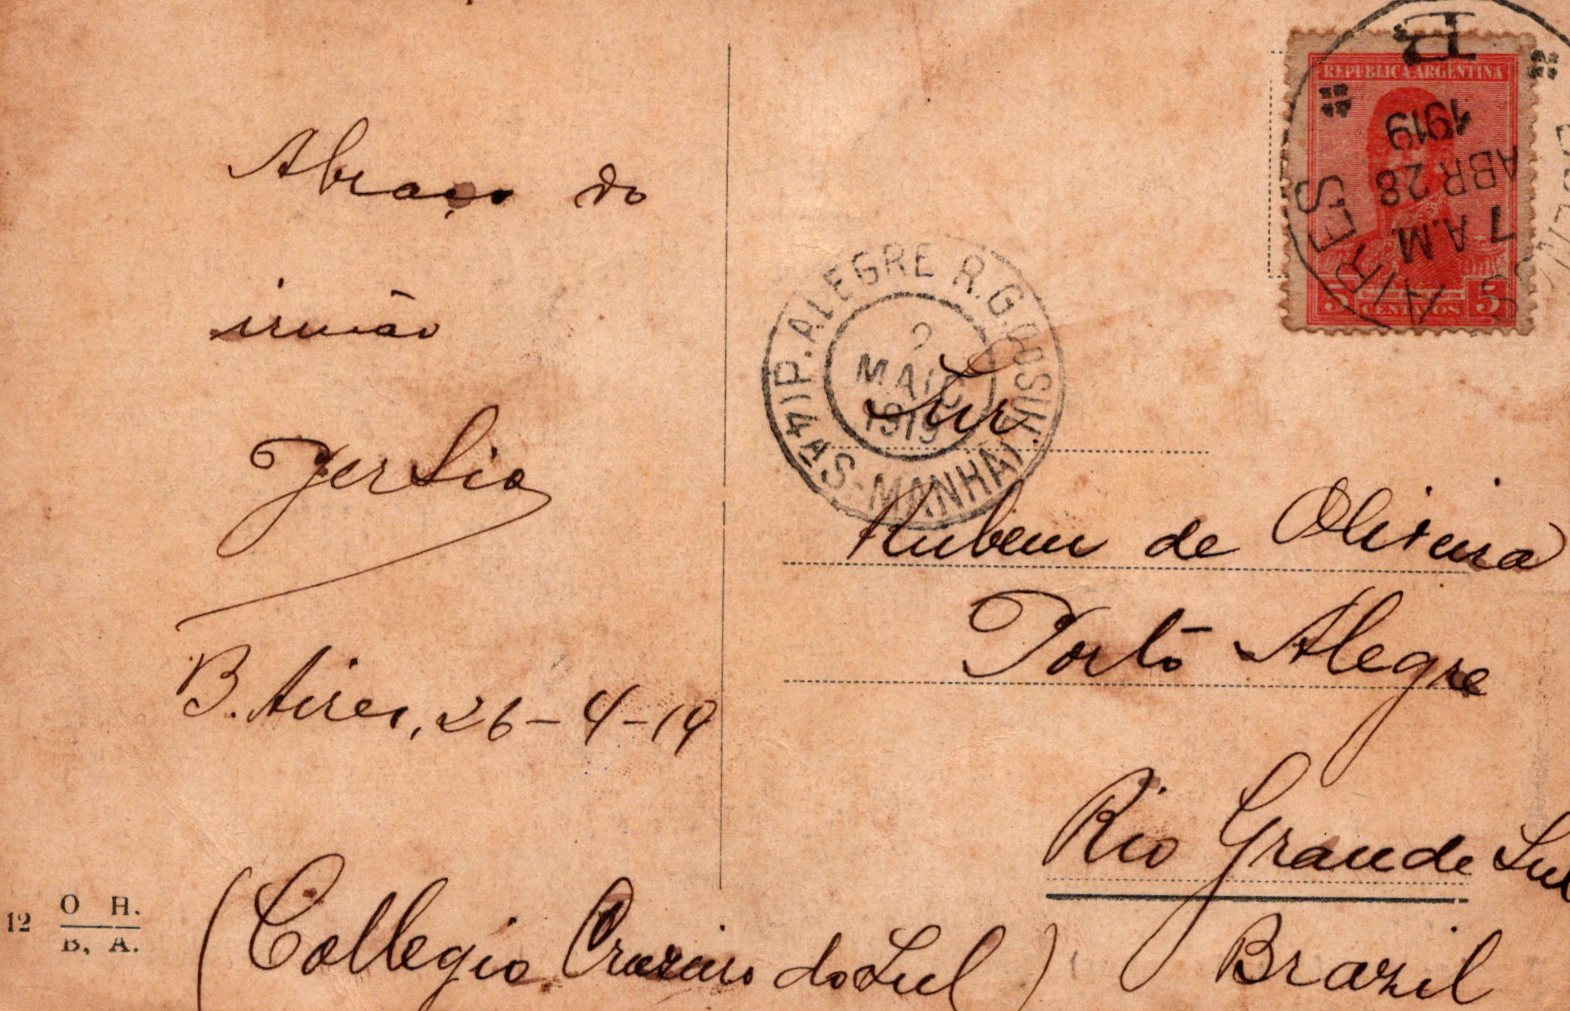 Abraço do
irmão
Tersio
B. Aires, 26-4-19
12 O H.
B. A.
REPUBLICA ARGENTINA
5 CENTAVOS 5
BUENOS AIRES
7 A.M.
ABR 28
1919
P. ALEGRE R.G. DO SUL
2
MAIO
1919
4ªS-MANHÃ
Snr
Rubem de Oliveira
Porto Alegre
Rio Grande Sul
Brazil
(Collegio Cruzeiro do Sul)